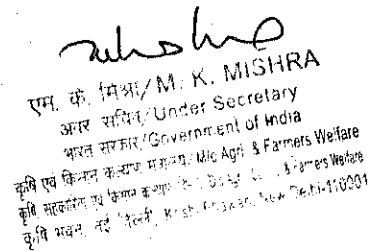 एम. के. मिश्रा/M. K. MISHRA
अवर सचिव/Under Secretary
भारत सरकार/Government of India
कृषि एवं किसान कल्याण मंत्रालय/M/o Agri. & Farmers Welfare
कृषि एवं किसान कल्याण & Farmers Welfare
कृषि भवन, नई दिल्ली/Krishi Bhawan, New Delhi-110001